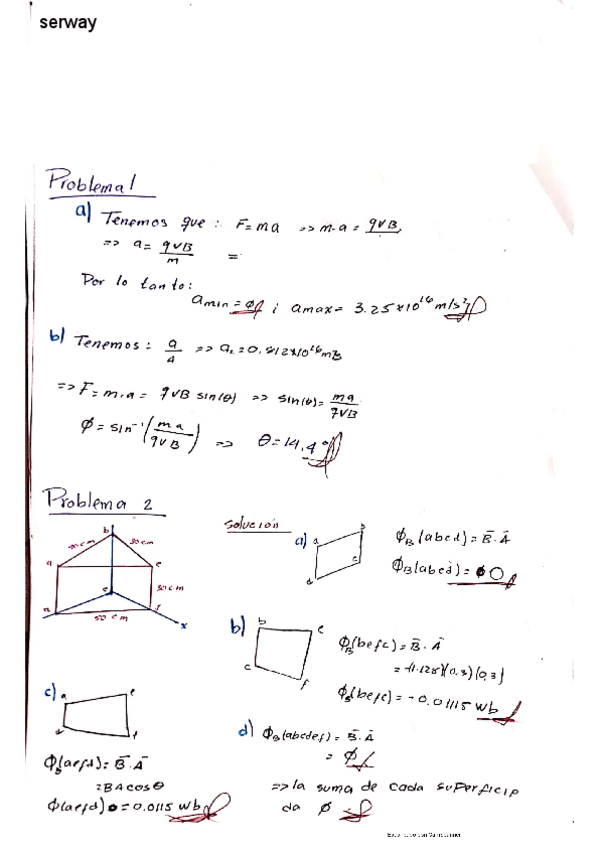 serway
Problema 1
a) Tenemos que : F=ma => m.a = qVB
=> a= qVB/m =
Por lo tanto:
amin = ø ; amax = 3.25*10^16 m/s²
b) Tenemos : a/4 =>
=> F = m.a = qVB sin(θ) => sin(θ) = ma/qVB
ø = sin⁻¹(ma/qVB) => θ=14.4°
Problema 2
solución
b
30 cm
a
e
30 cm
c
d
f
50 cm
x
a) a b c d
ΦB(abcd) = B̄·Ā
ΦB(abcd) = 0
b) b e c f
ΦB(befc) = B̄·Ā
= -(1.128)(0.3)(0.3)
ΦB(befc) = -0.01115 wb
c) a e d f
ΦB(aefd) = B̄·Ā
=BAcosθ
Φ(aefd) = 0.0115 wb
d) ΦB(abcdef) = B̄·Ā
= ø
=> la suma de cada superficie
da ø